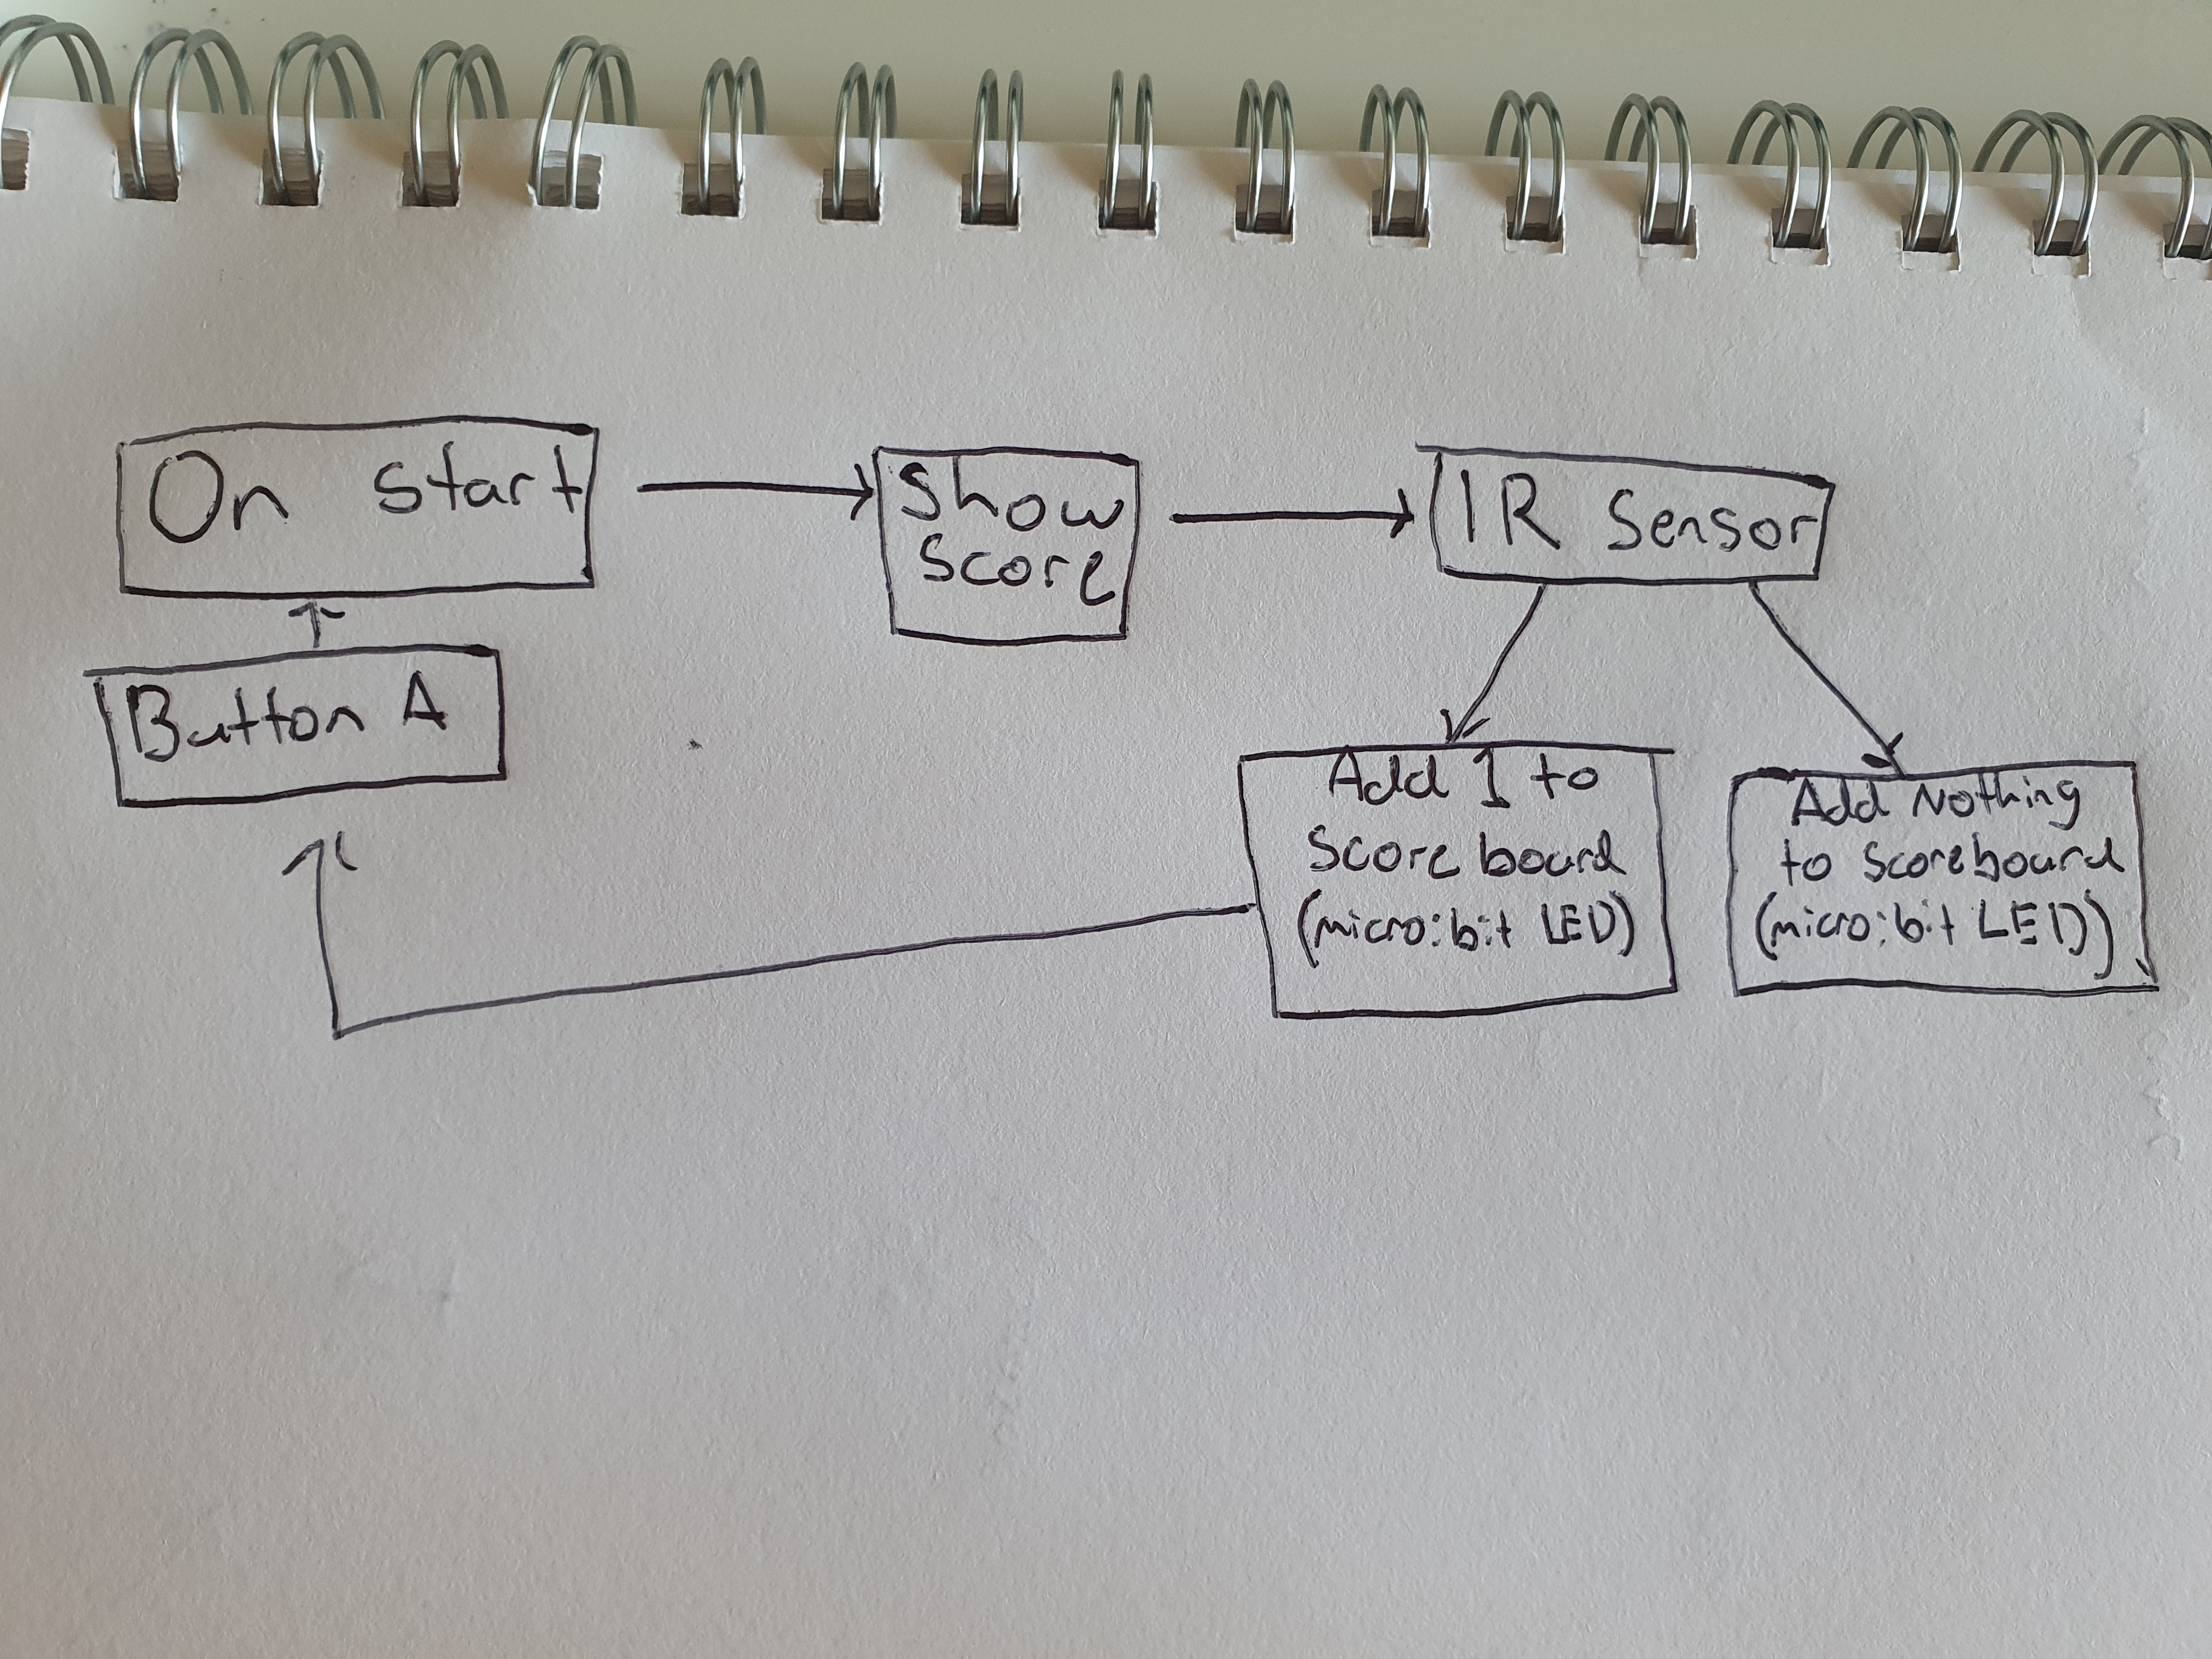 On start
Button A
Show
Score
IR Sensor
Add 1 to
scoreboard
(micro:bit LED)
Add nothing
to scoreboard
(micro:bit LED)